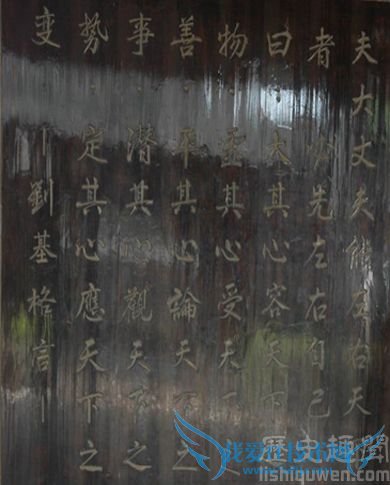 夫大丈夫能左右天
者必先左右自己
曰：大其心容天
物：虛其心受天
善：平其心論天下之
事：潜其心觀天下之
势：定其心應天下之
变—劉基格言—
歷史趣聞
lishiquwen.com